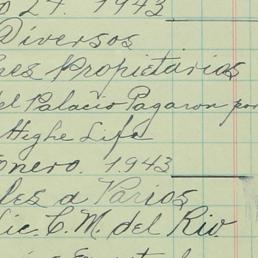 o 24. 1943
Diversos
nes Propietarios
del Palacio Pagaron por
Heghe Life
onero. 1943
les a Varios
Lic. C. M. del Rio.